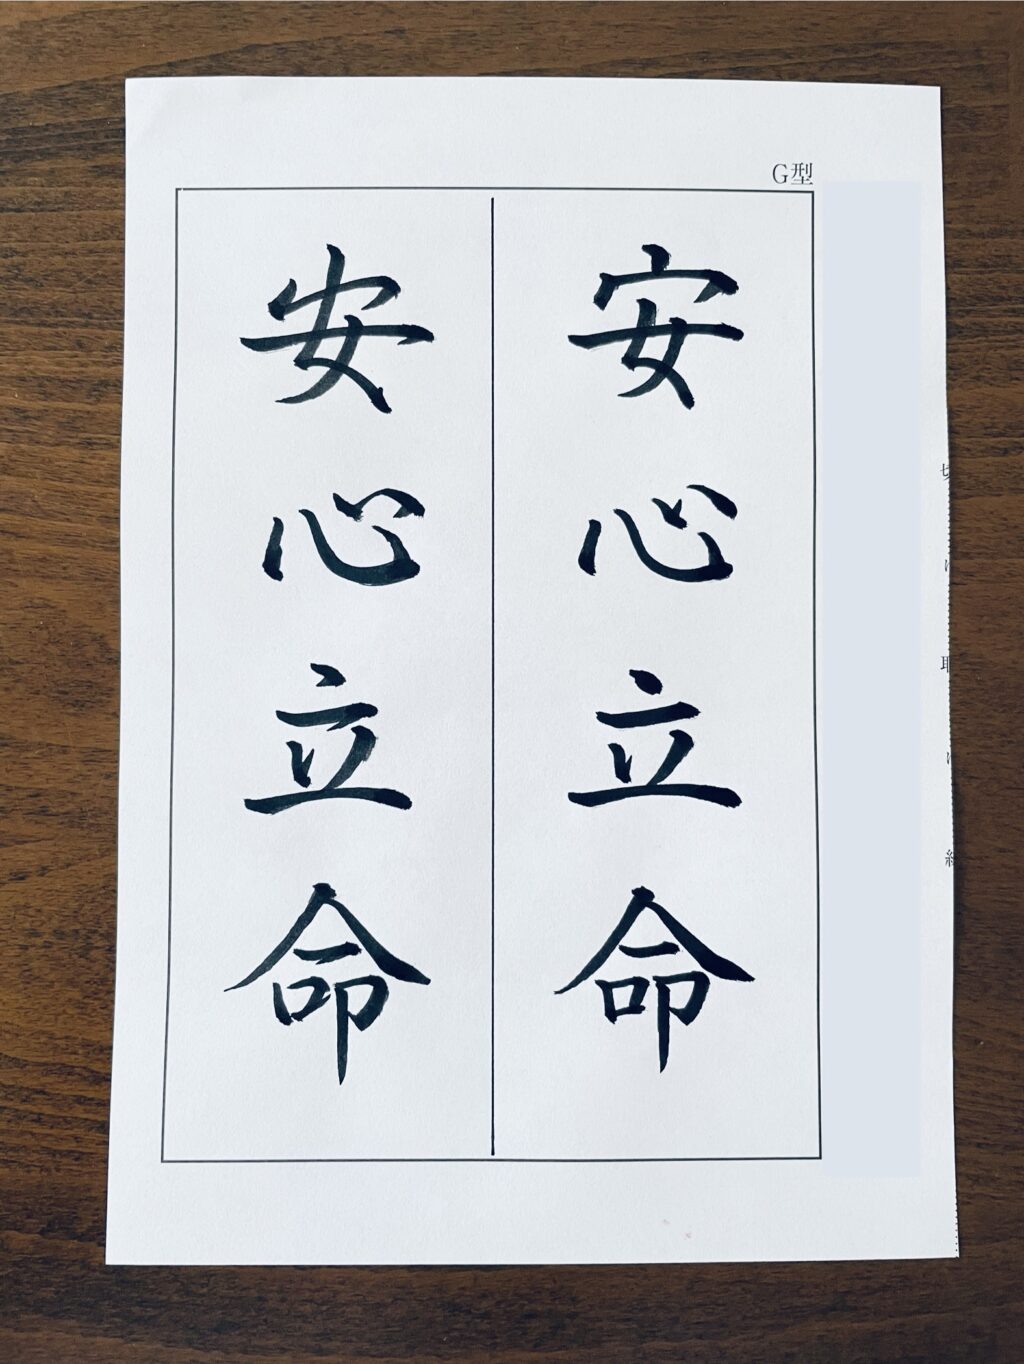 G型
安心立命
安心立命